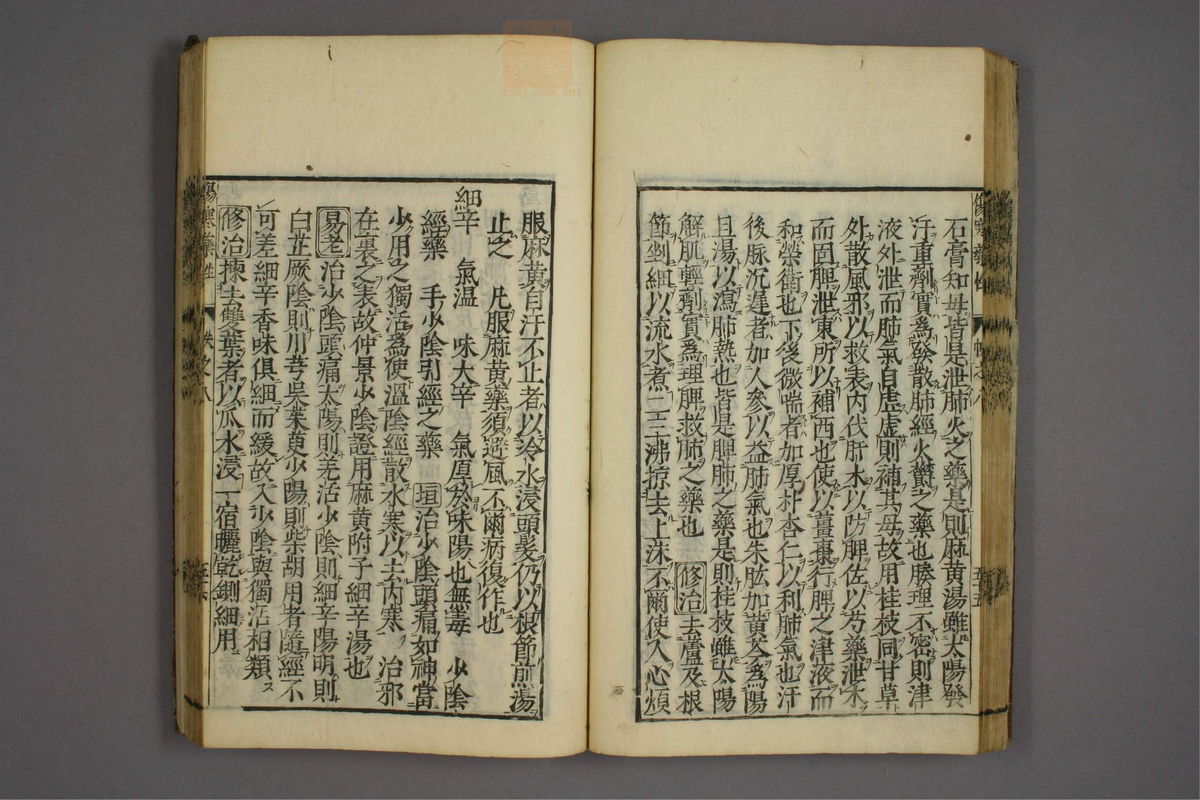 石膏知母皆是泄肺火之藥是則麻黃湯雖太陽發
汗重劑實為發散肺經火鬱之藥也腠理不密則津
液外泄而肺氣自虛虛則補其母故用桂枝同甘草
外散風邪以救表內伐肝木以防脾佐以芍藥泄木
而固脾泄東所以補西也使以薑棗行脾之津液而
和榮衛也下後微喘者加厚朴杏仁以利肺氣也汗
後脉沉遲者加人參以益肺氣也朱肱加黃芩為陽
旦湯以瀉肺熱也皆是脾肺之藥是則桂枝雖太陽
解肌輕劑實為理脾救肺之藥也 修治去蘆及根
節剉細以流水煮二三沸掠去上沫不爾使人心煩
服麻黃自汗不止者以冷水浸頭髮仍以根節煎湯
止之 凡服麻黃藥須避風不爾病復作也
細辛 氣溫 味大辛 氣厚於味陽也無毒 少陰
經藥 手少陰引經之藥 垣治少陰頭痛如神當
少用之獨活為使溫陰經散水寒以去內寒 治邪
在裏之表故仲景少陰證用麻黃附子細辛湯也
易老治少陰頭痛太陽則羌活少陰則細辛陽明則
白芷厥陰則川芎吳茱萸少陽則柴胡用者隨經不
可差細辛香味俱細而緩故入少陰與獨活相類
修治揀去雙葉者以瓜水浸一宿曬乾剉細用